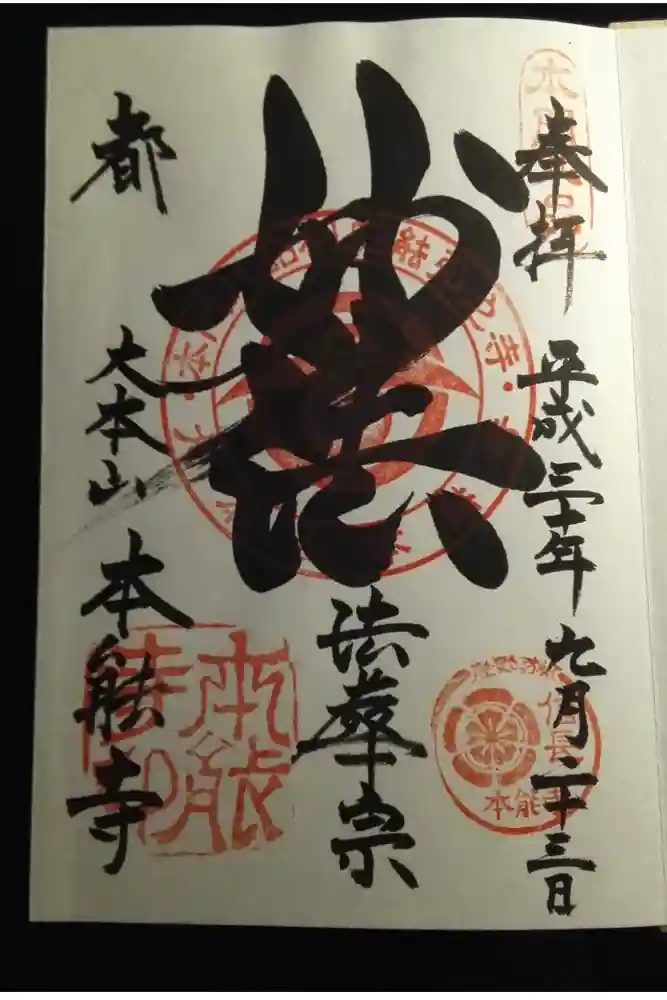 奉拝 平成三十年 九月二十三日
妙法
法華宗
都 大本山 本能寺
信長
本能寺
本能
寺印